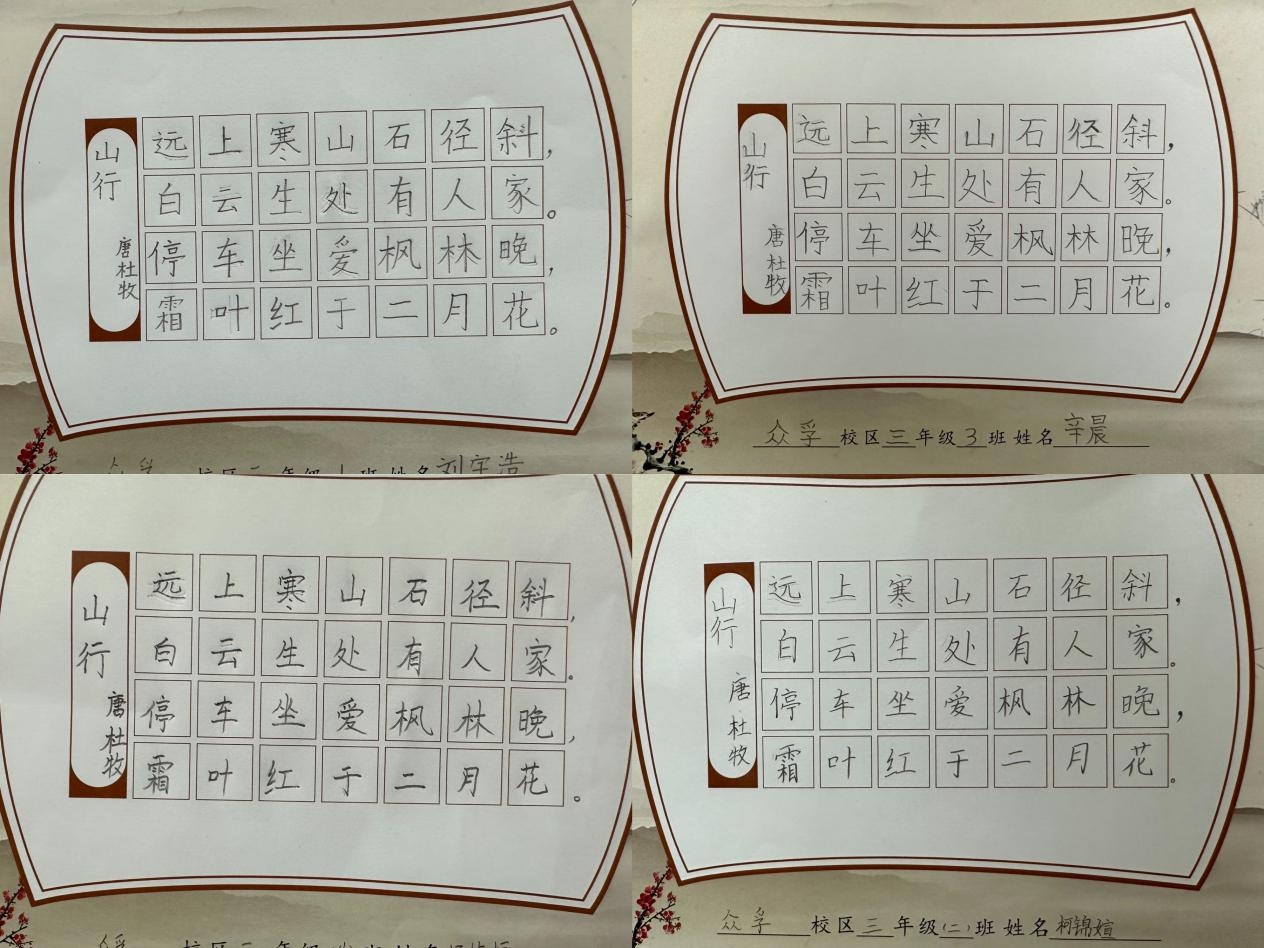 山行
唐杜牧
远上寒山石径斜，
白云生处有人家。
停车坐爱枫林晚，
霜叶红于二月花。
校区 年级1班姓名刘宇浩
山行
唐杜牧
远上寒山石径斜，
白云生处有人家。
停车坐爱枫林晚，
霜叶红于二月花。
众孚校区三年级3班姓名辛晨
山行
唐杜牧
远上寒山石径斜，
白云生处有人家
停车坐爱枫林晚，
霜叶红于二月花。
校区 年级 班姓名
山行
唐杜牧
远上寒山石径斜，
白云生处有人家。
停车坐爱枫林晚，
霜叶红于二月花。
众孚校区三年级(二)班姓名柯锦萱